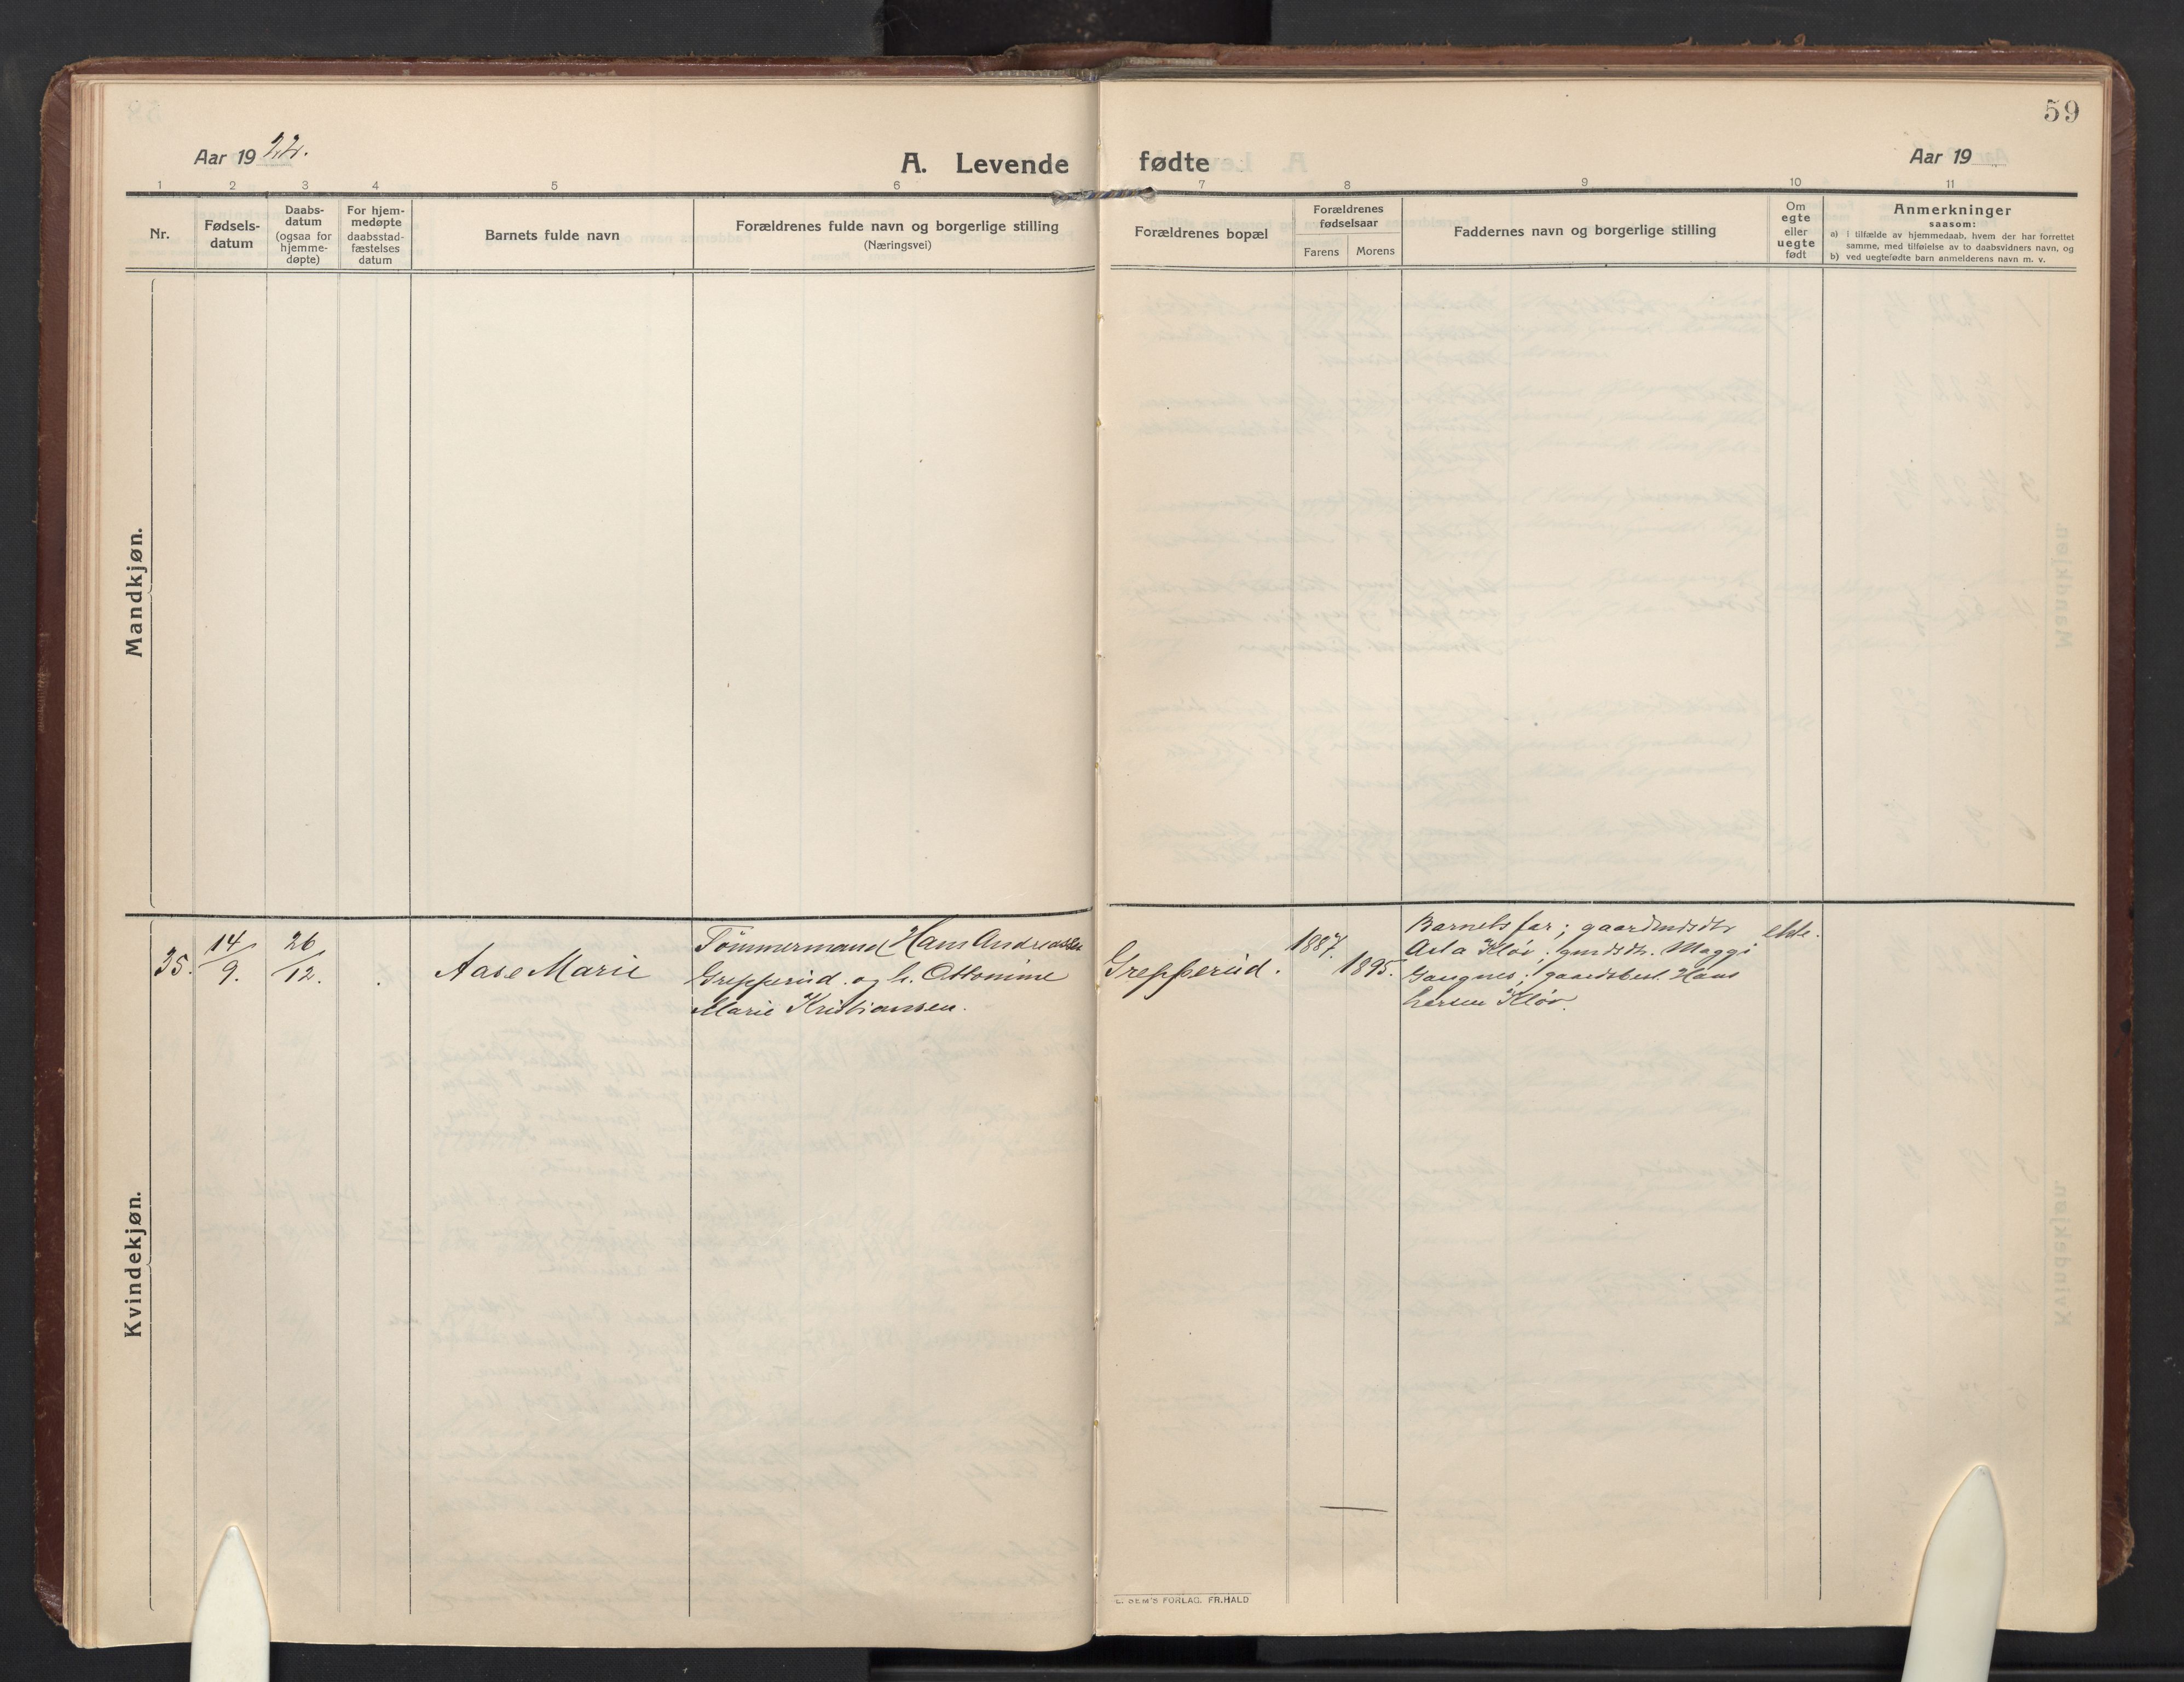 59
Aar 1922.
A. Levende fødte
Aar 19
1 2 3 4 5 6 7 8 9 10 11
Nr.
Fødsels-
datum
Daabs-
datum
(ogsaa for
hjemme-
døpte)
For hjem-
medøpte
daabsstad-
fæstelses
datum
Barnets fulde navn
Forældrenes fulde navn og borgerlige stilling
(Næringsvei)
Forældrenes bopæl
Forældrenes
fødselsaar
Farens Morens
Faddernes navn og borgerlige stilling
Om
egte
eller
uegte
født
Anmerkninger
saasom:
a) i tilfælde av hjemmedaab, hvem der har forrettet
samme, med tilføielse av to daabsvidners navn, og
b) ved uegtefødte barn anmelderens navn m. v.
Mandkjøn.
Kvindekjøn.
35.
14/9.
26/12.
Aase Marie
Tømmermand Hans Andreassen
Grepperud. og h. Ottomine
Marie Kristiansen.
Grepperud.
1887.
1895.
Barnets far; gaardmdsdtr
Asla Kløv; gmdsdtr. Maggi
gaardbest. Hans
Larsen Kløv.
ekte.
E. SEM'S FORLAG. FR.HALD